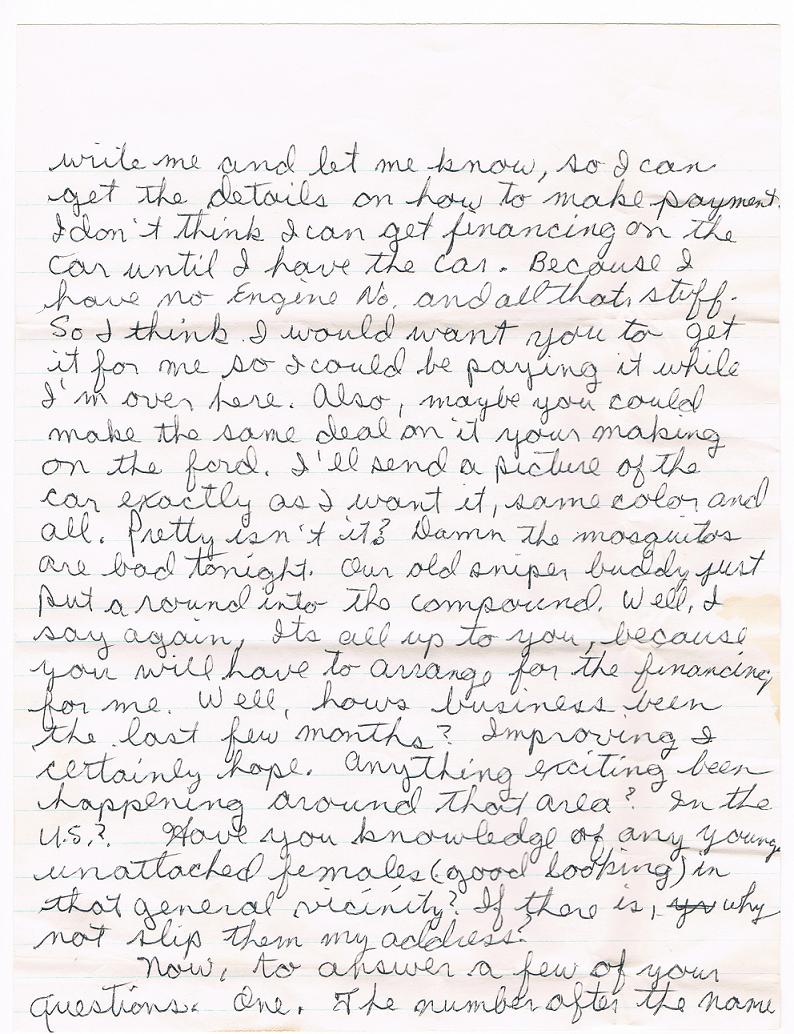 write me and let me know, so I can
get the details on how to make payment.
I don't think I can get financing on the
car until I have the car. Because I
have no Engine No. and all that stuff.
So I think I would want you to get
it for me so I could be paying it while
I'm over here. Also, maybe you could
make the same deal on it your making
on the ford. I'll send a picture of the
car exactly as I want it, same color and
all. Pretty isn't it? Damn the mosquitos
are bad tonight. Our old sniper buddy just
put a round into the compound. Well, I
say again, Its all up to you, because
you will have to arrange for the financing
for me. Well, hows business been
the last few months? Improving I
certainly hope. Anything exciting been
happening around that area? In the
U.S.? Have you knowledge of any young
unattached females (good looking) in
that general vicinity? If there is, why
not slip them my address?
Now, to answer a few of your
questions. One. The number after the name